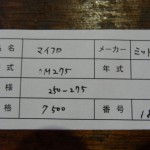 名 マイクロ メーカー ミット
式 M275 年式
様 250-275
格 7,500 番号 18